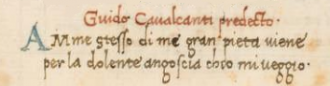 Guido Caualcanti predetto.
AMme stesso di me gran pieta viene
per la dolente angoscia ch'io mi veggio.